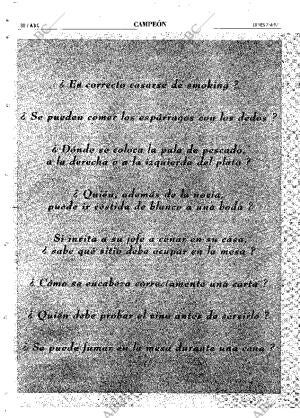 30 / ABC
CAMPEÓN
LUNES 7-4-97
¿ Es correcto casarse de smoking ?
¿ Se pueden comer los espárragos con los dedos ?
¿ Dónde se coloca la pala de pescado,
a la derecha o a la izquierda del plato ?
¿ Quién, además de la novia,
puede ir vestida de blanco a una boda ?
Si invita a su jefe a cenar en su casa,
¿ sabe qué sitio debe ocupar en la mesa ?
¿ Cómo se encabeza correctamente una carta ?
¿ Quién debe probar el vino antes de servirlo ?
¿ Se puede fumar en la mesa durante una cena ?